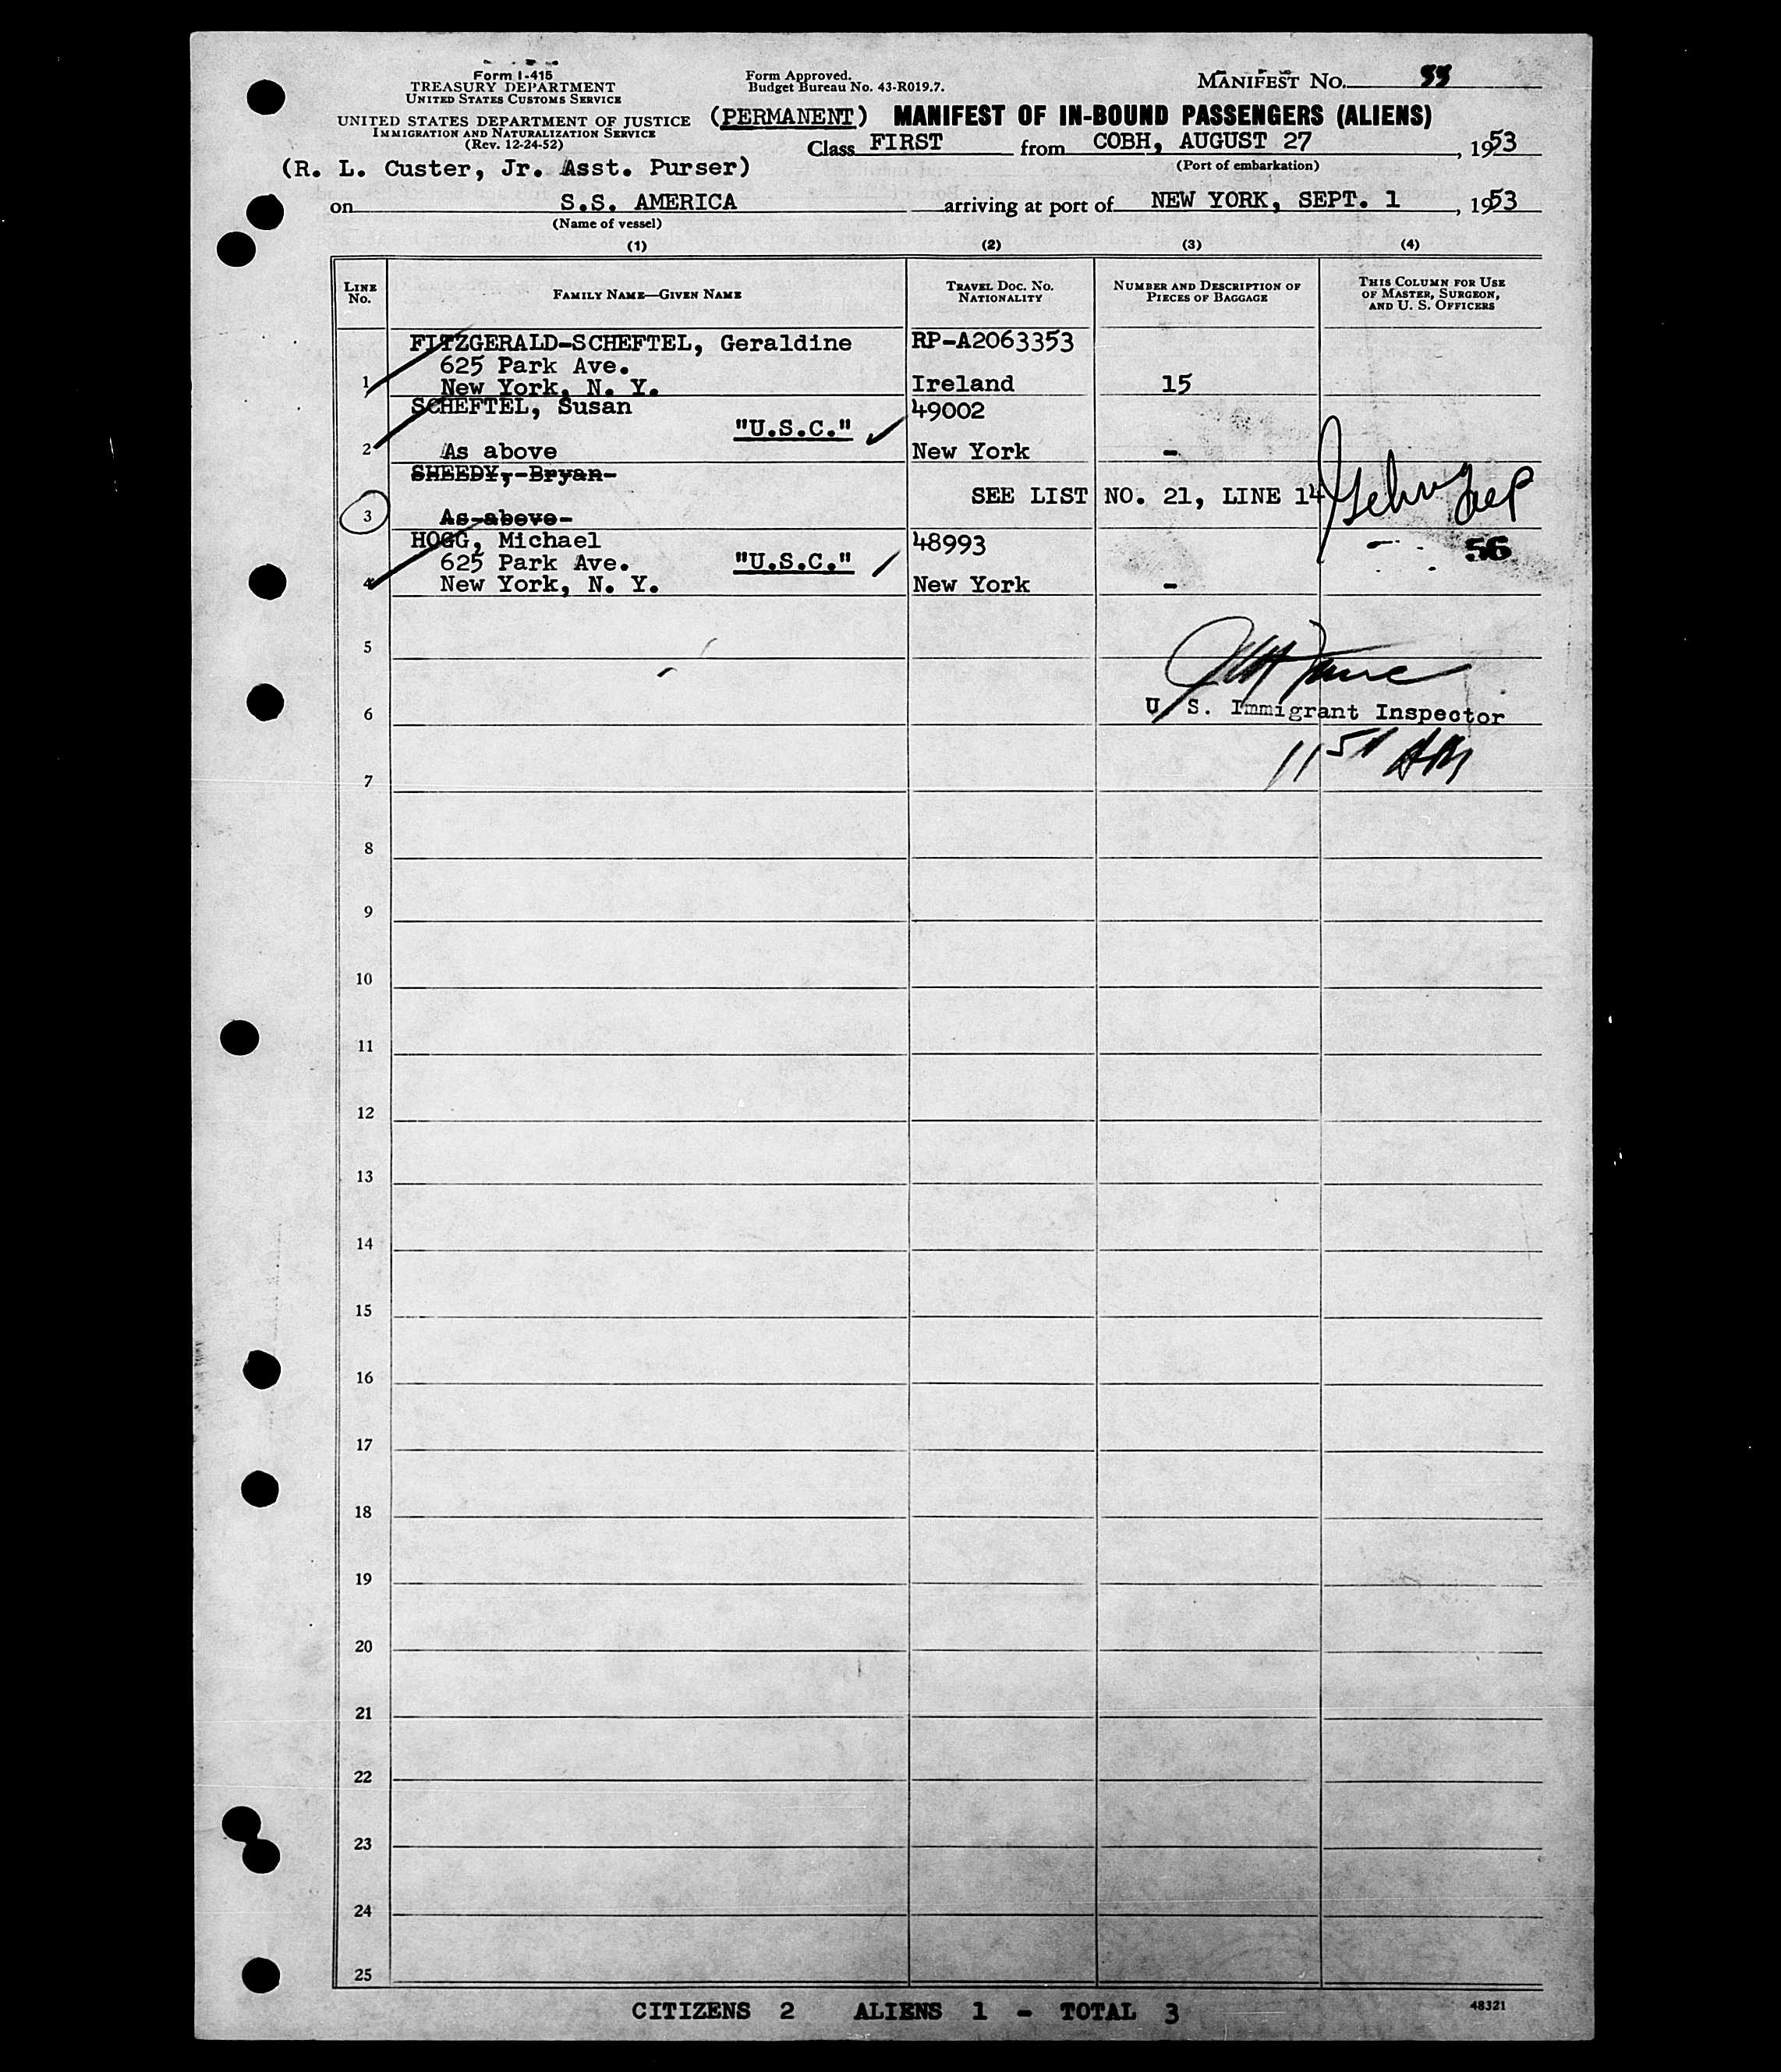 Form I-415
TREASURY DEPARTMENT
UNITED STATES CUSTOMS SERVICE
UNITED STATES DEPARTMENT OF JUSTICE
IMMIGRATION AND NATURALIZATION SERVICE
(Rev. 12-24-52)
Form Approved.
Budget Bureau No. 43-R019.7.
MANIFEST No.
(PERMANENT) MANIFEST OF IN-BOUND PASSENGERS (ALIENS)
Class FIRST from COBH, AUGUST 27, 1953
(Port of embarkation)
(R. L. Custer, Jr. Asst. Purser)
on S.S. AMERICA arriving at port of NEW YORK, SEPT. 1, 1953
(Name of vessel)
(1) (2) (3) (4)
LINE No. FAMILY NAME—GIVEN NAME TRAVEL DOC. NO. NATIONALITY NUMBER AND DESCRIPTION OF PIECES OF BAGGAGE THIS COLUMN FOR USE OF MASTER, SURGEON, AND U. S. OFFICERS
FITZGERALD-SCHEFTEL, Geraldine RP-A2063353
625 Park Ave.
1 New York, N. Y. Ireland 15
SCHEFTEL, Susan 49002
"U.S.C."
2 As above New York -
SHEEDY, Bryan
SEE LIST NO. 21, LINE 14
3 As above
HOGG, Michael 48993
625 Park Ave. "U.S.C." 56
4 New York, N. Y. New York -
5
6 U. S. Immigrant Inspector
7
8
9
10
11
12
13
14
15
16
17
18
19
20
21
22
23
24
25
CITIZENS 2 ALIENS 1 - TOTAL 3
48321